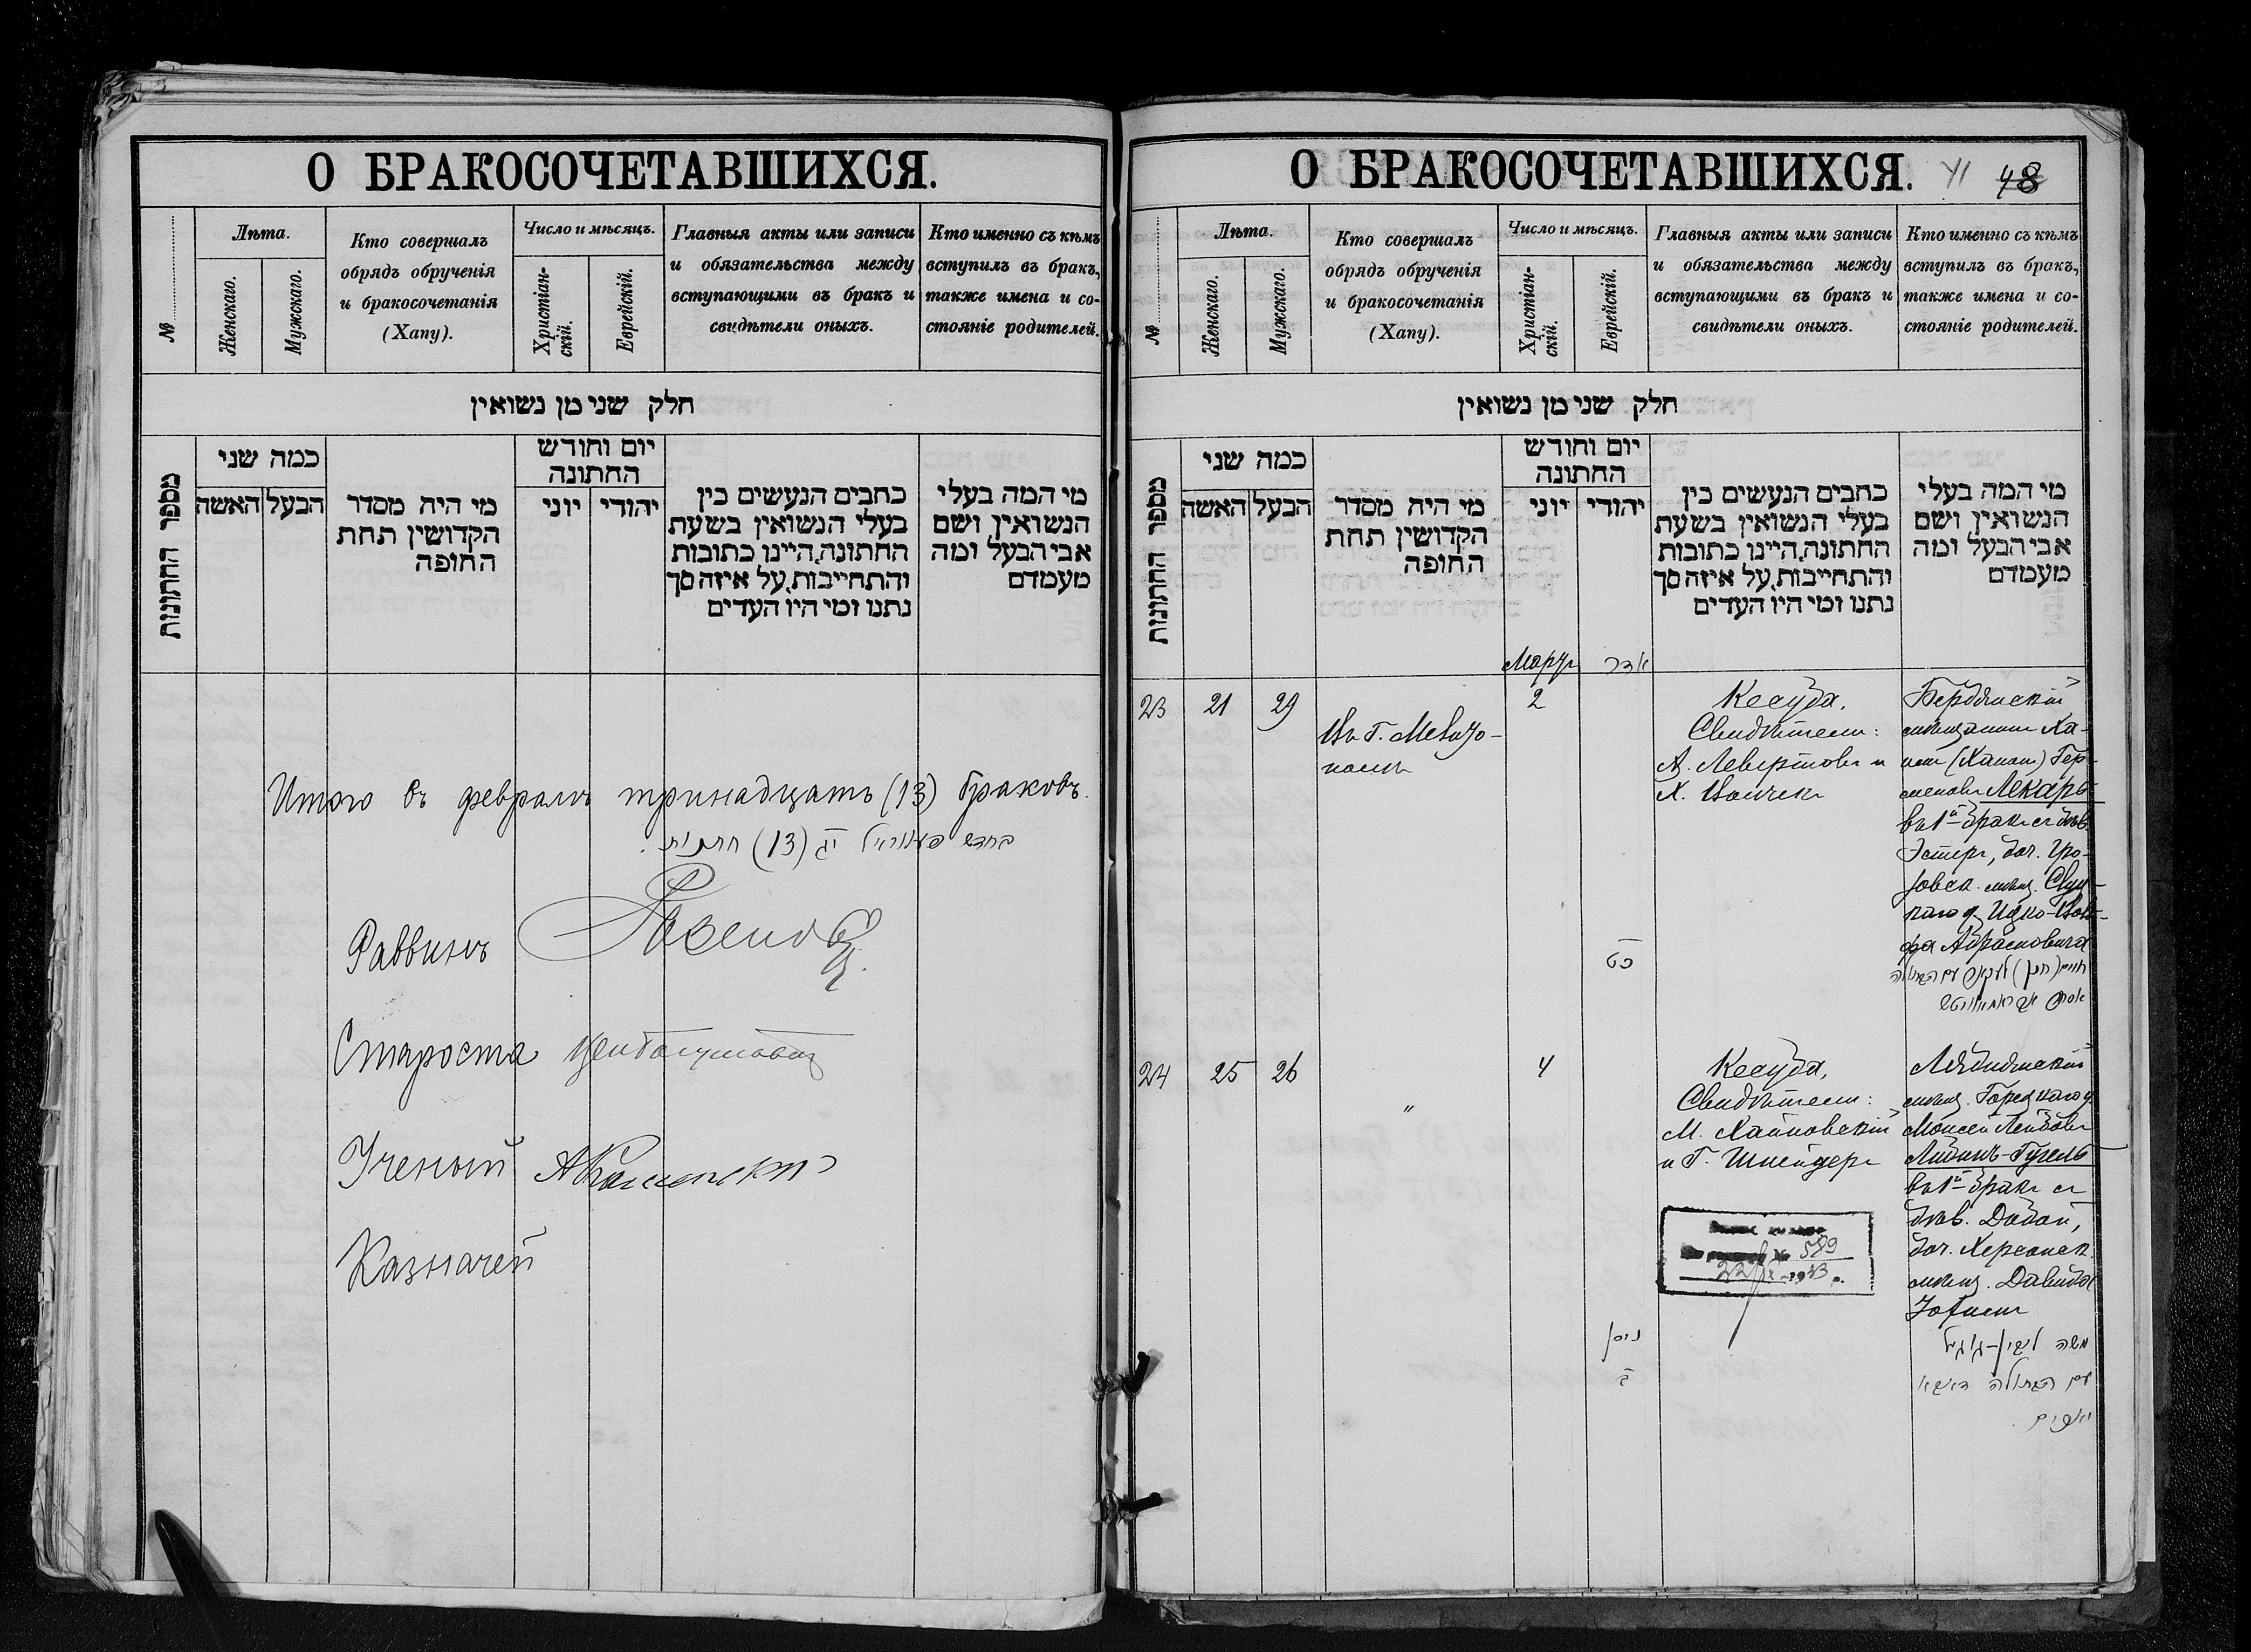 О БРАКОСОЧЕТАВШИХСЯ.
№
Лѣта.
Женскаго.
Мужскаго.
Кто совершалъ
обрядъ обрученія
и бракосочетанія
(Хапу).
Число и мѣсяцъ.
Христіан-
скій.
Еврейскій.
Главныя акты или записи
и обязательства между
вступающими въ бракъ и
свидѣтели оныхъ.
Кто именно съ кѣмъ
вступилъ въ бракъ,
также имена и со-
стояніе родителей.
חלק שני מן נשואין
מספר החתונות
כמה שני
האשה
הבעל
מי היה מסדר
הקדושין תחת
החופה
יום וחודש
החתונה
יוני
יהודי
כתבים הנעשים בין
בעלי הנשואין בשעת
החתונה, היינו כתובות
והתחייבות, על איזה סך
נתנו ומי היו העדים
מי המה בעלי
הנשואין ושם
אבי הבעל ומה
מעמדם
Итого въ февралѣ тринадцать (13) браковъ.
בחדש פעווראל יג (13) חתנות.
Раввинъ
Староста
Ученый
Казначей
О БРАКОСОЧЕТАВШИХСЯ. 41 48
№
Лѣта.
Женскаго.
Мужскаго.
Кто совершалъ
обрядъ обрученія
и бракосочетанія
(Хапу).
Число и мѣсяцъ.
Христіан-
скій.
Еврейскій.
Главныя акты или записи
и обязательства между
вступающими въ бракъ и
свидѣтели оныхъ.
Кто именно съ кѣмъ
вступилъ въ бракъ,
также имена и со-
стояніе родителей.
חלק שני מן נשואין
מספר החתונות
כמה שני
האשה
הבעל
מי היה מסדר
הקדושין תחת
החופה
יום וחודש
החתונה
יוני
יהודי
כתבים הנעשים בין
בעלי הנשואין בשעת
החתונה, היינו כתובות
והתחייבות, על איזה סך
נתנו ומי היו העדים
מי המה בעלי
הנשואין ושם
אבי הבעל ומה
מעמדם
Мартъ
אדר
23
21
29
Въ г. Мелито-
полѣ
2
כט
Кесуба,
Свидѣтели:
А. Левертовъ и
Х. Волчекъ
Бердянскій
мѣщанинъ Ха-
имъ (Ханан) Гер-
шеновъ Лекарь
въ 1й бракъ съ дѣв.
Эстеръ, доч.
мѣщ.
Абрамовича
חיים (חנן) לעקאר עם הבתולה
אסתר אבראמאוויטש
24
25
26
"
4
ניסן
ב
Кесуба,
Свидѣтели:
М. Хайновскій
и Г. Шнейдеръ
мѣщ.
Моисей Лейбовъ
Либинъ-Гугель
въ 1й бракъ съ
дѣв. Добой,
доч. Херсонск.
мѣщ. Давида
Іофисъ
משה ליבין-גוגעל
עם הבתולה דאבא
יאפיס.
589